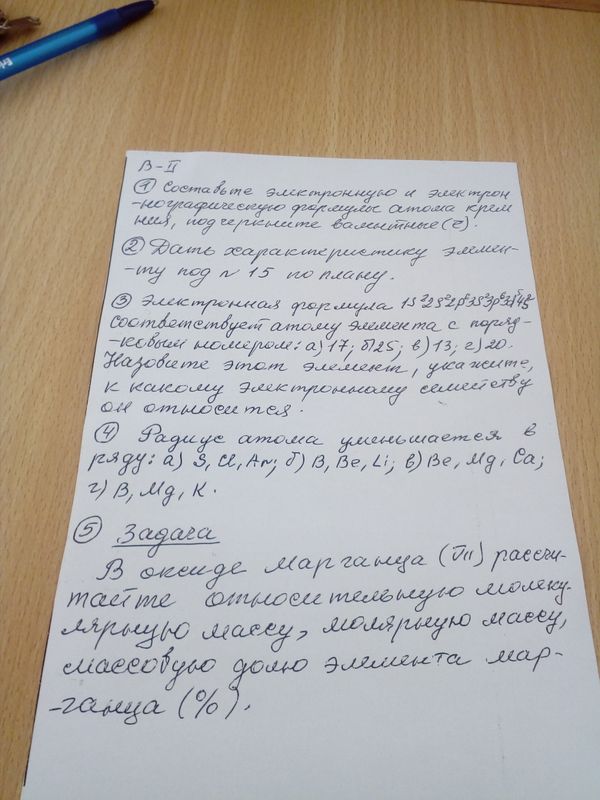 В-II
① Составьте электронную и электрон
-нографическую формулы атома крем
ния, подчеркните валентные (ē).
② Дать характеристику элемен-
-ту под № 15 по плану.
③ Электронная формула 1s²2s²2p⁶3s²3p⁶3d⁵4s²
соответствует атому элемента с поряд-
-ковым номером: а) 17; б) 25; в) 13; г) 20.
Назовите этот элемент, укажите,
к какому электронному семейству
он относится.
④ Радиус атома уменьшается в
ряду: а) S, Cl, Ar; б) B, Be, Li; в) Be, Mg, Ca;
г) B, Mg, K.
⑤ Задача
В оксиде марганца (VII) рассчи-
тайте относительную молеку-
лярную массу, молярную массу,
массовую долю элемента мар-
-ганца (%).